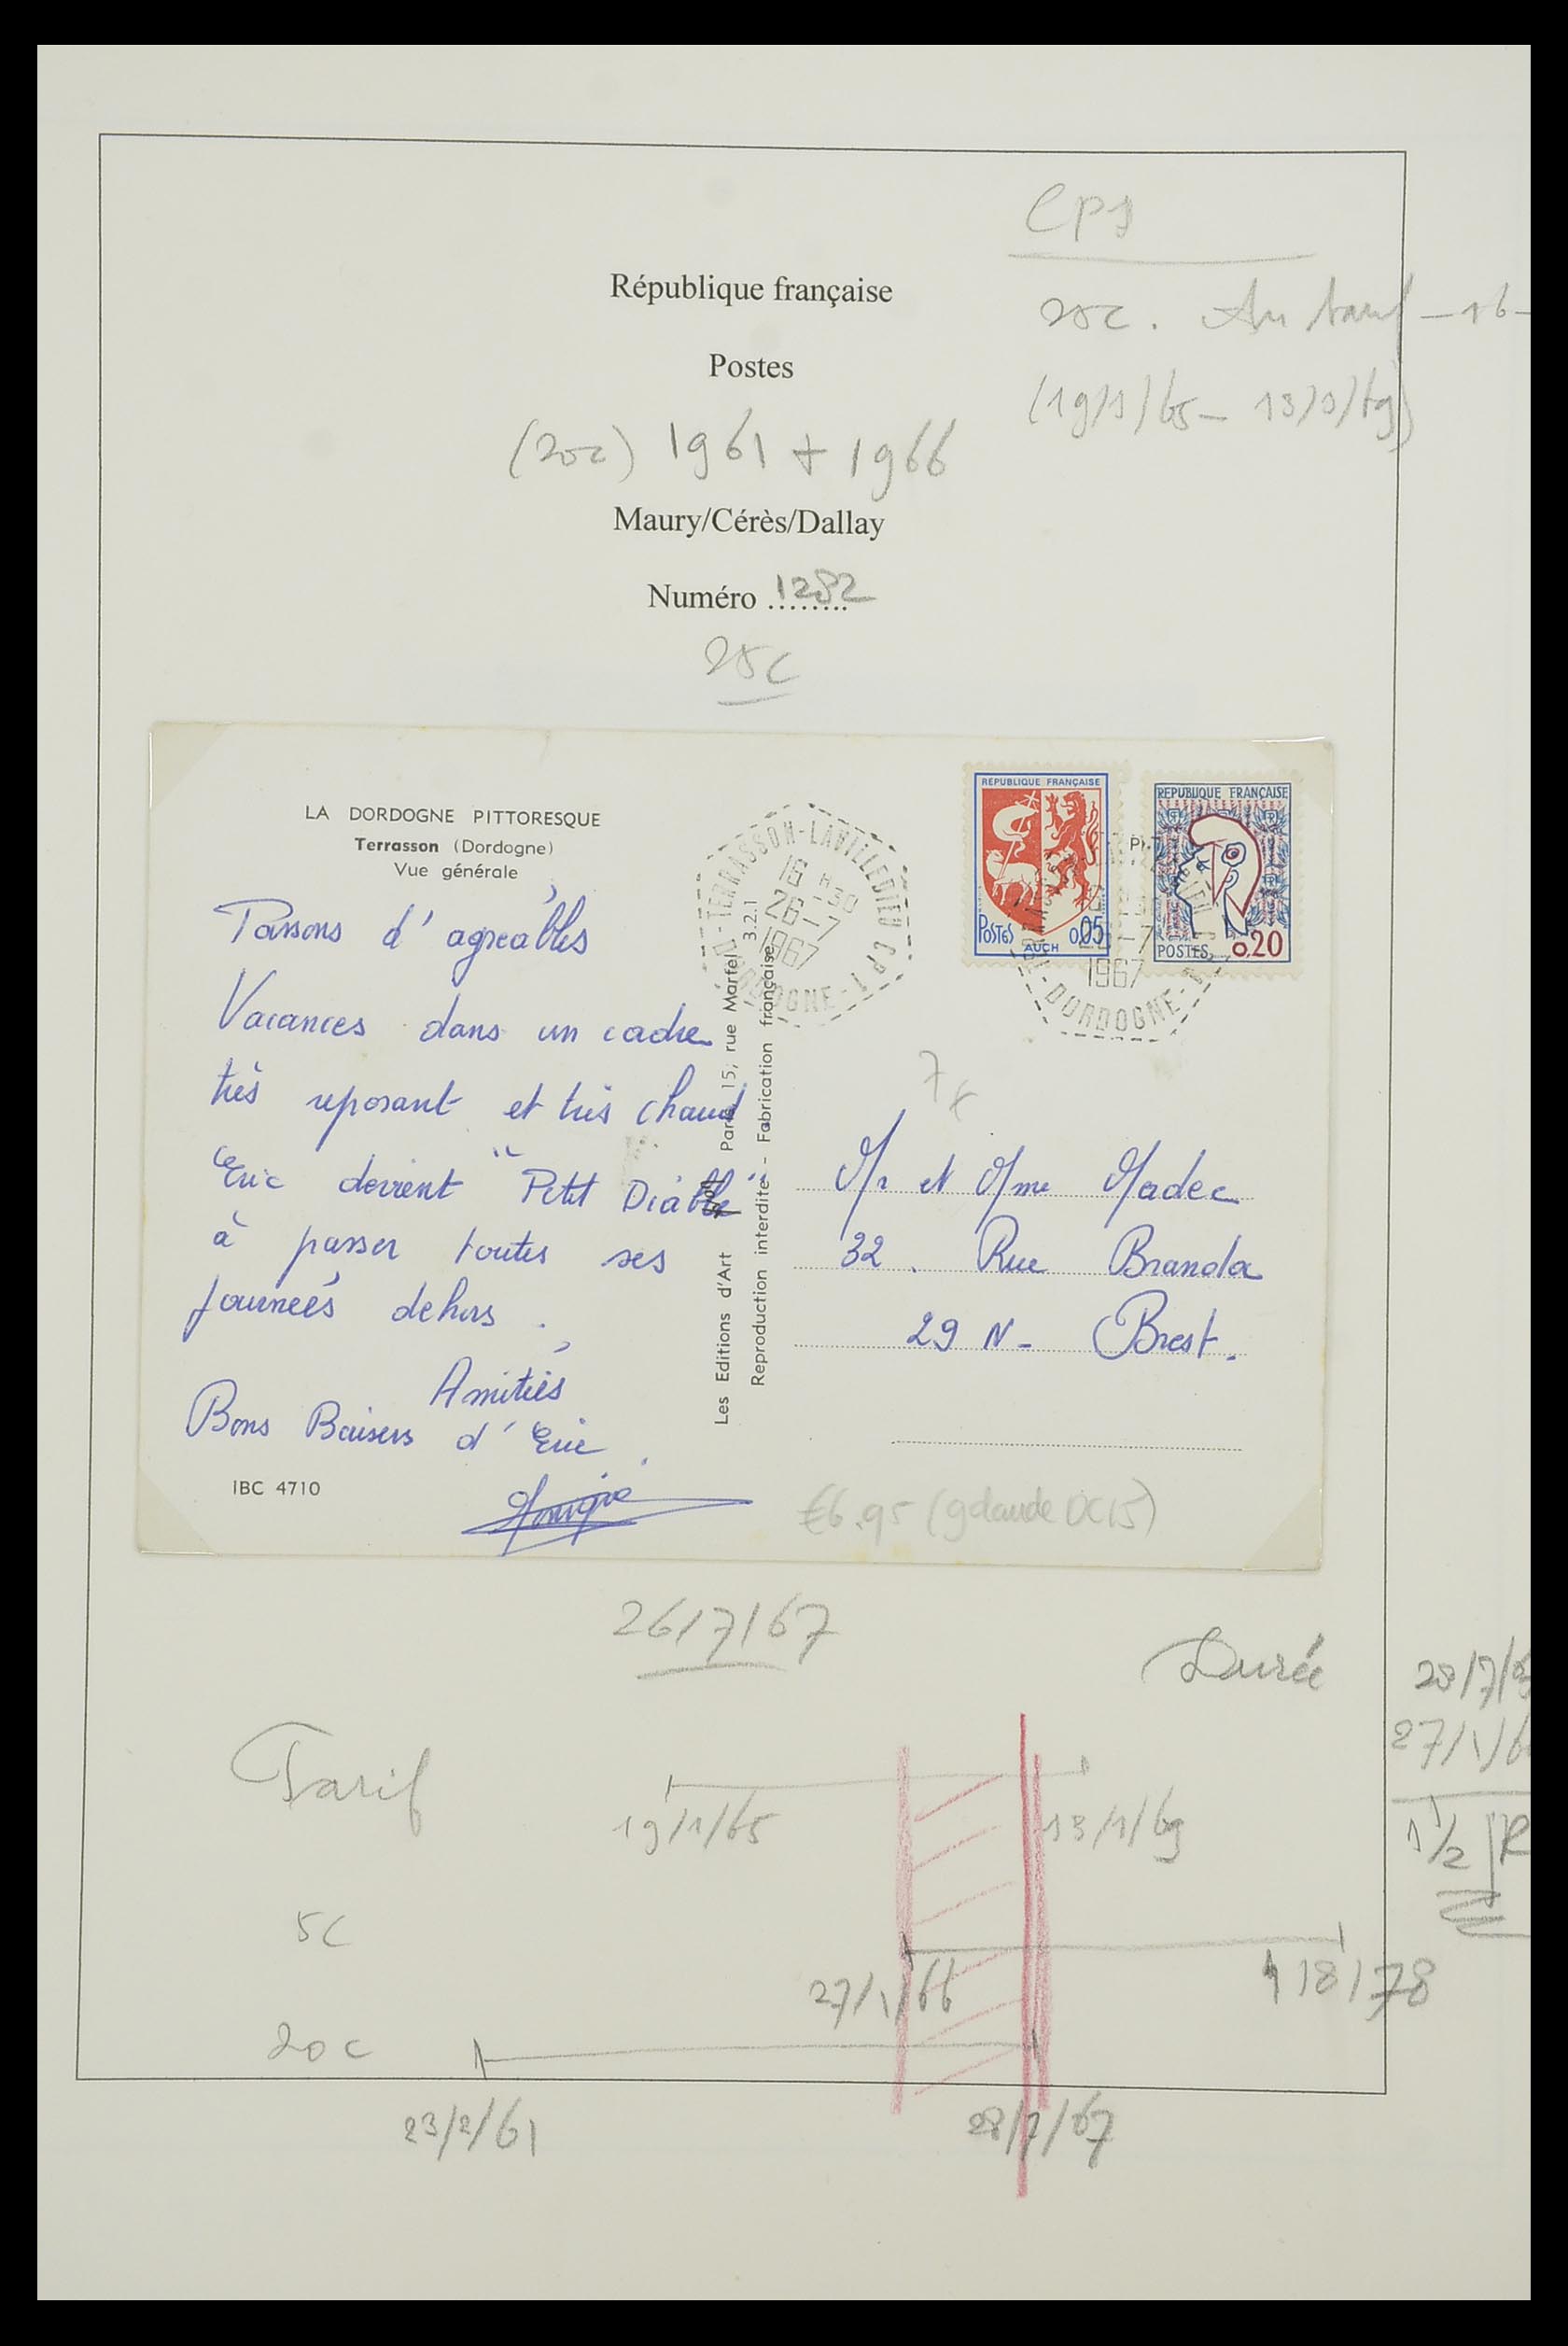 Cps
25c. Au tarif - 16 -
(19/1/65 - 13/1/69)
République française
Postes
(20c) 1961 + 1966
Maury/Cérès/Dallay
Numéro ........ 1282
25c
LA DORDOGNE PITTORESQUE
Terrasson (Dordogne)
Vue générale
Passons d'agréables
Vacances dans un cadre
très reposant et très chaud
Eric devient "Petit Diable"
à passer toutes ses
journées dehors.
Amitiés
Bons Baisers d'Eric
IBC 4710
TERRASSON-LAVILLEDIEU C.P.1
16 H 30
26-7
1967
DORDOGNE
Les Editions d'Art Paris 15, rue Martel 3.2.1
Reproduction interdite - Fabrication française
REPUBLIQUE FRANÇAISE
POSTES 0,05
AUCH
REPUBLIQUE FRANÇAISE
POSTES 0,20
-7
1967
DORDOGNE
7€
Mr et Mme Madec
32. Rue Branda
29 N- Brest.
€6.95 (gdaude DC15)
26/7/67
Durée
28/7/6
27/1/6
1 1/2
Tarif
19/1/65
13/1/69
5c
27/1/66
1/8/78
20c
23/2/61
28/7/67